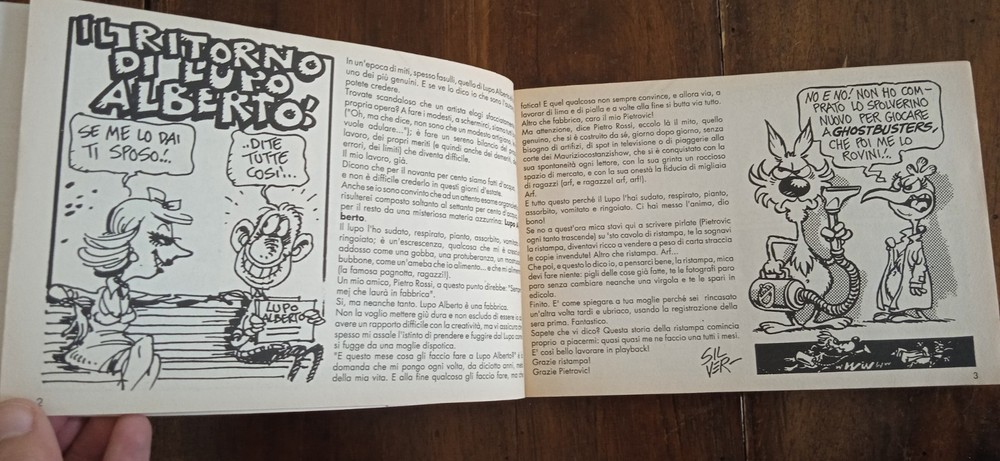 IL RITORNO
DI LUPO
ALBERTO!
SE ME LO DAI
TI SPOSO...
..DITE
TUTTE
COSÌ...
LUPO
ALBERTO
2
In un'epoca di miti, spesso fasulli, quello di Lupo Alberto è
uno dei più genuini. E se ve lo dico io che sono l'autore
potete credere.
Trovate scandaloso che un artista elogi sfacciatamente
propria opera? A fare i modesti, a schermirci, siamo tutti
("Oh, ma che dice, non sono che un modesto artigiano,
vuole adulare..."); è fare un sereno bilancio del proprio
lavoro, dei propri meriti (e quindi anche dei demeriti,
errori, dei limiti) che diventa difficile.
Il mio lavoro, già.
Dicono che per il novanta per cento siamo fatti d'acqua,
e non è difficile crederlo in questi giorni d'estate.
Anche se io sono convinto che ad un attento esame organolettico
risulterei composto soltanto al settanta per cento d'acqua,
per il resto da una misteriosa materia azzurrina: Lupo
berto.
Il lupo l'ho sudato, respirato, pianto, assorbito, vomitato,
ringoiato; è un'escrescenza, qualcosa che mi è cresciuto
addosso come una gobba, una protuberanza, un
bubbone, come un'ameba che io alimento... e che mi alimenta
(la famosa pagnotta, ragazzi!).
Un mio amico, Pietro Rossi, a questo punto direbbe:
mej che laurà in fabbrica".
Sì, ma neanche tanto. Lupo Alberto è una fabbrica.
Non la voglio mettere giù dura e non escludo di essere
avere un rapporto difficile con la creatività, ma vi assicuro
spesso mi assale l'istinto di prendere e fuggire dal Lupo come
si fugge da una moglie dispotica.
"E questo mese cosa gli faccio fare a Lupo Alberto?" è
domanda che mi pongo ogni volta, da diciotto anni,
della mia vita. E alla fine qualcosa gli faccio fare, ma che
fatica! E quel qualcosa non sempre convince, e allora via, a
lavorar di lima e di pialla e a volte alla fine si butta via tutto.
Altro che fabbrica, caro il mio Pietrovic!
Ma attenzione, dice Pietro Rossi, eccolo là il mito, quello
genuino, che si è costruito da sè, giorno dopo giorno, senza
bisogno di artifizi, di spot in televisione o di piaggerie alla
corte dei Mauriziocostanzishow, che si è conquistato con la
sua spontaneità ogni lettore, con la sua grinta un roccioso
spazio di mercato, e con la sua onestà la fiducia di migliaia
di ragazzi (arf, e ragazze! arf, arf!).
Arf.
E tutto questo perchè il Lupo l'hai sudato, respirato, pianto,
assorbito, vomitato e ringoiato. Ci hai messo l'anima, dio
bono!
Se no a quest'ora mica stavi qui a scrivere pirlate (Pietrovic
ogni tanto trascende) su 'sto cavolo di ristampa, te la sognavi
la ristampa, diventavi ricco a vendere a peso di carta straccia
le copie invendute! Altro che ristampa. Arf...
Che poi, e questo lo dico io, a pensarci bene, la ristampa, mica
devi fare niente: pigli delle cose già fatte, te le fotografi paro
paro senza cambiare neanche una virgola e te le spari in
edicola.
Finito. E' come spiegare a tua moglie perchè sei rincasato
un'altra volta tardi e ubriaco, usando la registrazione della
sera prima. Fantastico.
Sapete che vi dico? Questa storia della ristampa comincia
proprio a piacermi: quasi quasi me ne faccio una tutti i mesi.
E' così bello lavorare in playback!
Grazie ristampa!
Grazie Pietrovic!
SIL
VER
NO E NO! NON HO COM-
PRATO LO SPOLVERINO
NUOVO PER GIOCARE
A GHOSTBUSTERS,
CHE POI ME LO
ROVINI!..
WWW
3